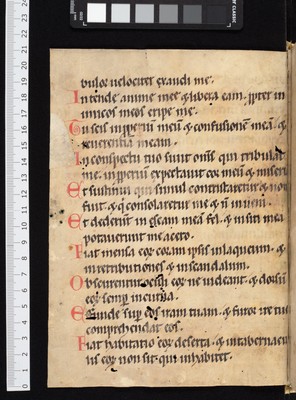 bulor uelociter exaudi me.
Intende anime mee & libera eam. ppter in
imicos meos eripe me.
Tu scis inpperiu meu & confusione mea. &
reuerentia meam.
In conspectu tuo sunt oms qui tribulant
me. inpperiu expectauit cor meu & miseria
Et sustinui qui simul contristaretur & non
fuit. & q consolaretur me & n inueni.
Et dederunt in escam meā fel. & in siti mea
potauerunt me aceto.
Fiat mensa eor coram ipsis in laqueum. &
in retributiones & in scandalum.
Obscurentur oculi eor ne uideant. & dorsu
eor semp incurua.
Effunde sup eos iram tuam. & furor ire tue
comprehendat eos.
Fiat habitatio eor deserta. & in tabernacu
lis eor non sit qui inhabitet.